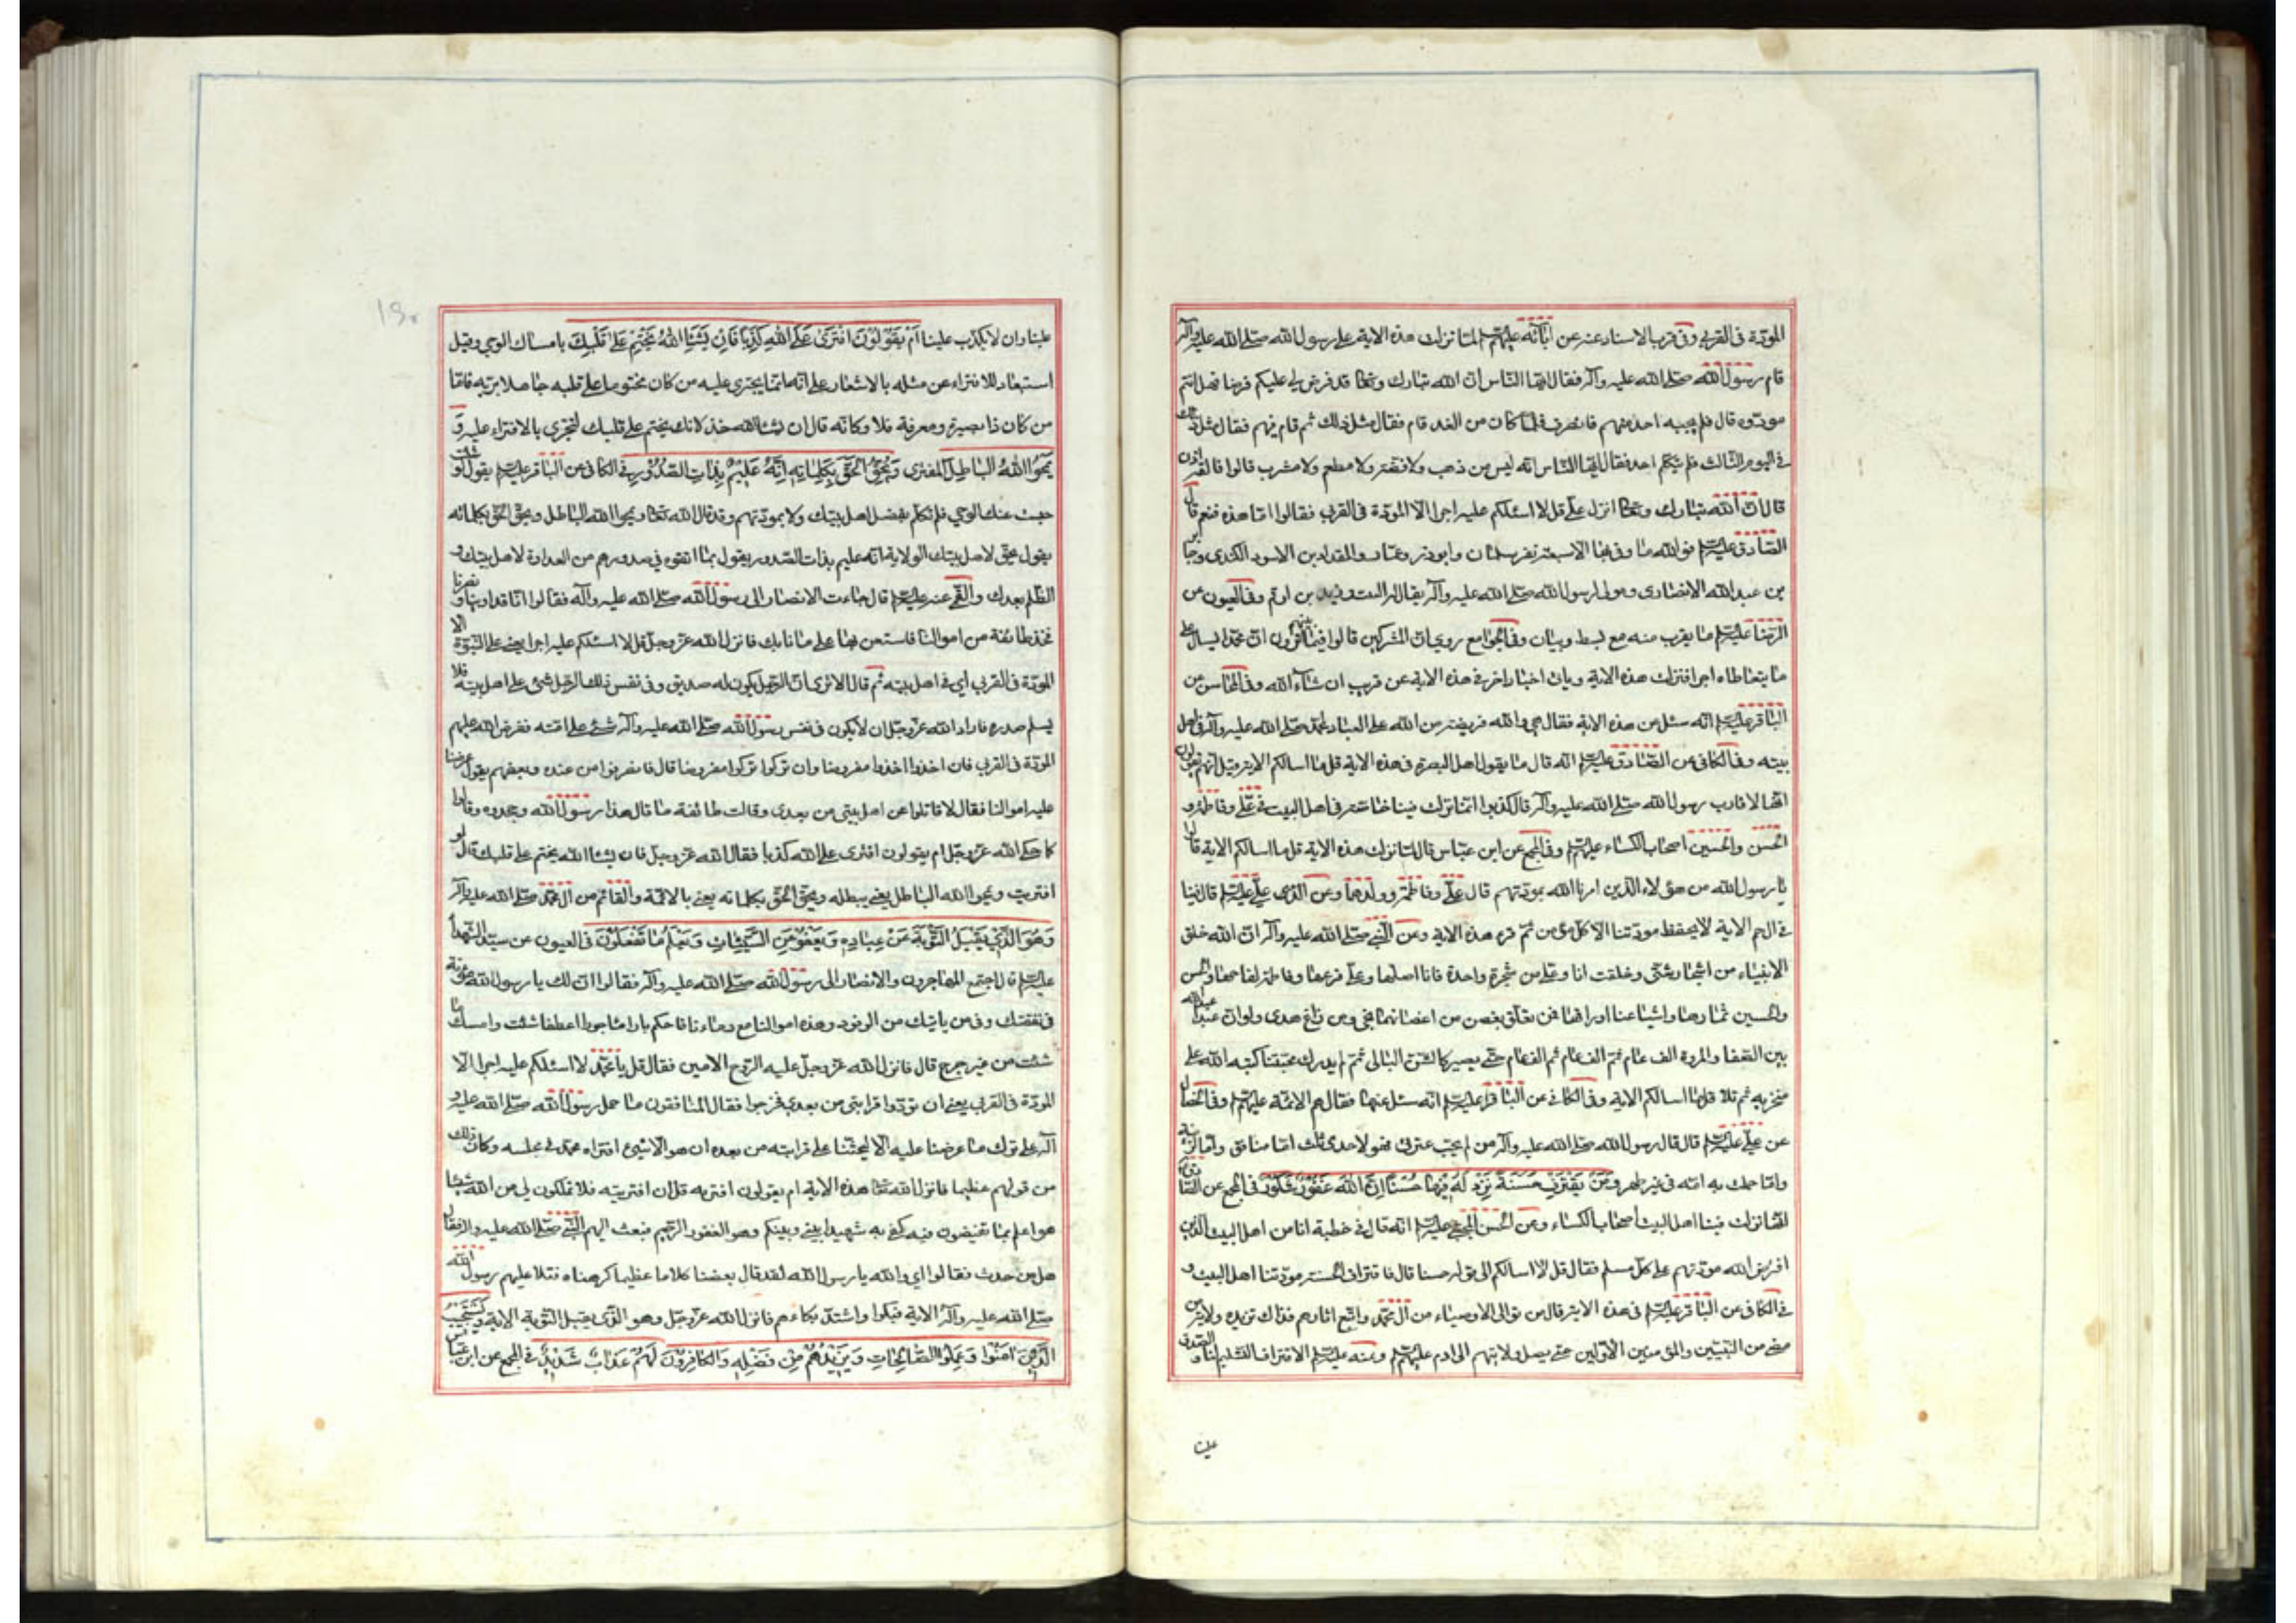 المودّة فی القربی وفی قرب الاسناد عنه عن ابائه علیهم لمّا نزلت هذه الایة علی رسول الله صلّی الله علیه واله
قام رسول الله صلّی الله علیه واله فقال ایّها النّاس انّ الله تبارک وتعالی قد فرض لی علیکم فرضا فهل انتم
مودّوه قال فلم یجبه احد منهم فانصرف فلمّا کان من الغد قام فقال مثل ذلک ثم قام فیهم فقال مثل ذلک
فی الیوم الثالث فلم یتکلم احد فقال ایّها النّاس انّه لیس من ذهب ولا فضّة ولا مطعم ولا مشرب قالوا فالقه اذن
قال انّ الله تبارک وتعالی انزل علیّ قل لا اسئلکم علیه اجرا الّا المودّة فی القربی فقالوا امّا هذه فنعم قال
الصّادق علیه السلم فوالله ما وفی بها الا سبعة نفر سلمان وابوذر وعمّار والمقداد بن الاسود الکندی وجابر
بن عبد الله الانصاری ومولی لرسول الله صلّی الله علیه واله یقال له البیت وزید بن ارقم وفی العیون عن
الرّضا علیه السلم ما یقرب منه مع بسط وبیان وفی الجوامع روی انّ المشرکین قالوا فیما بینهم اترون انّ محمّدا یسال علی
ما یتعاطاه اجرا فنزلت هذه الایة ویاتی اخبار اخر فی هذه الایة عن قریب ان شاء الله وفی المحاسن عن
الباقر علیه السلم انّه سئل عن هذه الایة فقال هی والله فریضة من الله علی العباد لمحمّد صلّی الله علیه واله فی اهل
بیته وفی الکافی عن الصّادق علیه السلم انّه قال ما یقول اهل البصرة فی هذه الایة قل لا اسالکم الایة قیل انّهم یقولون
انّها لاقارب رسول الله صلّی الله علیه واله قال کذبوا انّما نزلت فینا خاصّة فی اهل البیت فی علیّ وفاطمة و
الحسن والحسین اصحاب الکساء علیهم وفی المجمع عن ابن عبّاس قال لمّا نزلت هذه الایة قل لا اسالکم الایة قالوا
یا رسول الله من هؤلاء الّذین امرنا الله بمودّتهم قال علیّ وفاطمة وولدهما وعن علیّ علیه السلم قال فینا
فی ال حم الایة لا یحفظ مودّتنا الّا کل مؤمن ثمّ قرء هذه الایة وعن النّبی صلّی الله علیه واله انّ الله خلق
الانبیاء من اشجار شتّی وخلقت انا وعلیّ من شجرة واحدة فانا اصلها وعلیّ فرعها وفاطمة لقاحها والحسن
والحسین ثمارها واشیاعنا اوراقها فمن تعلّق بغصن من اغصانها نجی ومن زاغ هوی ولو انّ عبدا عبد الله
بین الصّفا والمروة الف عام ثمّ الف عام ثم الف عام حتّی یصیر کالشنّ البالی ثمّ لم یدرک محبّتنا کبّه الله علی
منخریه ثم تلا قل لا اسالکم الایة وفی الکافی عن الباقر علیه السلم انّه سئل عنها فقال هم الائمّة علیهم وفی الخصال
عن علیّ علیه السلم قال قال رسول الله صلّی الله علیه واله من لم یحبّ عترتی فهو لاحدی ثلث امّا منافق وامّا لزنیة
وامّا حملت به امّه فی غیر طهر وَمَنْ یَقْتَرِفْ حَسَنَةً نَزِدْ لَهُ فِیهَا حُسْنًا اِنَّ اللهَ غَفُورٌ شَکُورٌ فی المجمع عن الصّادق
انّها نزلت فینا اهل البیت اصحاب الکساء وعن الحسن المجتبی علیه السلم انّه قال فی خطبة انا من اهل البیت الّذین
افترض الله مودّتهم علی کلّ مسلم فقال قل لا اسالکم الی قوله حسنا قال فاقتراف الحسنة مودّتنا اهل البیت و
فی الکافی عن الباقر علیه السلم فی هذه الایة قال من توالی الاوصیاء من ال محمّد واتّبع اثارهم فذاک نزیده ولایة من
مضی من النّبیّین والمؤمنین الاوّلین حتّی یصل ولایتهم الی ادم علیهم وعنه علیه السلم الاقتراف التّسلیم لنا والصّدق
علینا
علینا وان لا یکذب علینا اَمْ یَقُولُونَ افْتَرَی عَلَی اللهِ کَذِبًا فَاِنْ یَشَاِ اللهُ یَخْتِمْ عَلَی قَلْبِکَ بامساک الوحی وقیل
استبعاد للافتراء عن مثله بالاشعار علی انّه انّما یجتری علیه من کان مختوما علی قلبه جاهلا بربّه فامّا
من کان ذا بصیرة ومعرفة فلا وکانّه قال ان یشا الله خذلانک یختم علی قلبک لتجتری بالافتراء علیه وَ
یَمْحُوا اللهُ الْبَاطِلَ المفتری وَیُحِقُّ الْحَقَّ بِکَلِمَاتِهِ اِنَّهُ عَلِیمٌ بِذَاتِ الصُّدُورِ فی الکافی عن الباقر علیه السلم یقول لو شئت
حبست عنک الوحی فلم تکلّم بفضل اهل بیتک ولا بمودّتهم وقد قال الله تعالی ویمحوا الله الباطل ویحقّ الحقّ بکلماته
یقول یحقّ لاهل بیتک الولایة انّه علیم بذات الصّدور یقول بما القوه فی صدورهم من العداوة لاهل بیتک و
الظّلم بعدک والقمّی عنه علیه السلم قال جاءت الانصار الی رسول الله صلّی الله علیه وآله فقالوا انّا قد اوینا ونصرنا
فخذ طائفة من اموالنا فاستعن بها علی ما نابک فانزل الله عزّ وجلّ قل لا اسئلکم علیه اجرا یعنی علی النّبوّة الا
المودّة فی القربی ای فی اهل بیته ثم قال الا تری انّ الرّجل یکون له صدیق وفی نفس ذلک الرّجل شئ علی اهل بیته فلا
یسلم صدره فاراد الله عزّ وجلّ ان لا یکون فی نفس رسول الله صلّی الله علیه واله شئ علی امّته ففرض الله علیهم
المودّة فی القربی فان اخذوا اخذوا مفروضا وان ترکوا ترکوا مفروضا قال فانصرفوا من عنده وبعضهم یقول عرضنا
علیه اموالنا فقال لا قاتلوا عن اهل بیتی من بعدی وقالت طائفة ما قال هذا رسول الله وجحدوه وقالوا
کما حکی الله عزّ وجلّ ام یقولون افتری علی الله کذبا فقال الله عزّ وجلّ فان یشا الله یختم علی قلبک قال لو
افتریت ویمحوا الله الباطل یعنی یبطله ویحقّ الحقّ بکلماته یعنی بالائمّة والقائم من ال محمّد صلّی الله علیه واله
وَهُوَ الَّذِی یَقْبَلُ التَّوْبَةَ عَنْ عِبَادِهِ وَیَعْفُو عَنِ السَّیِّئَاتِ وَیَعْلَمُ مَا تَفْعَلُونَ فی العیون عن سیّد الشّهدا
علیه السلم قال اجتمع المهاجرون والانصار الی رسول الله صلّی الله علیه واله فقالوا انّ لک یا رسول الله مؤنة
فی نفقتک وفی من یاتیک من الوفود وهذه اموالنا مع دماءنا فاحکم بارّا ماجورا اعط ما شئت وامسک ما
شئت من غیر حرج قال فانزل الله عزّ وجلّ علیه الرّوح الامین فقال قل یا محمّد لا اسئلکم علیه اجرا الّا
المودّة فی القربی یعنی ان تودّوا قرابتی من بعدی فخرجوا فقال المنافقون ما حمل رسول الله صلّی الله علیه و
آله علی ترک ما عرضنا علیه الّا لیحثّنا علی قرابته من بعده ان هو الّا شیئ افتراه محمّد فی مجلسه وکان ذلک
من قولهم عظیما فانزل الله تعالی هذه الایة ام یقولون افتریه قل ان افتریته فلا تملکون لی من الله شیئا
هو اعلم بما تفیضون فیه کفی به شهیدا بینی وبینکم وهو الغفور الرّحیم فبعث الیهم النّبی صلّی الله علیه واله فقال
هل من حدث فقالوا ای والله یا رسول الله لقد قال بعضنا کلاما عظیما کرهناه فتلا علیهم رسول الله
صلّی الله علیه واله الایة فبکوا واشتدّ بکاءهم فانزل الله عزّ وجلّ وهو الّذی یقبل التّوبة الایة وَیَسْتَجِیبُ
الَّذِینَ امَنُوا وَعَمِلُوا الصَّالِحَاتِ وَیَزِیدُهُمْ مِنْ فَضْلِهِ وَالْکَافِرُونَ لَهُمْ عَذَابٌ شَدِیدٌ فی المجمع عن ابن عبّاس